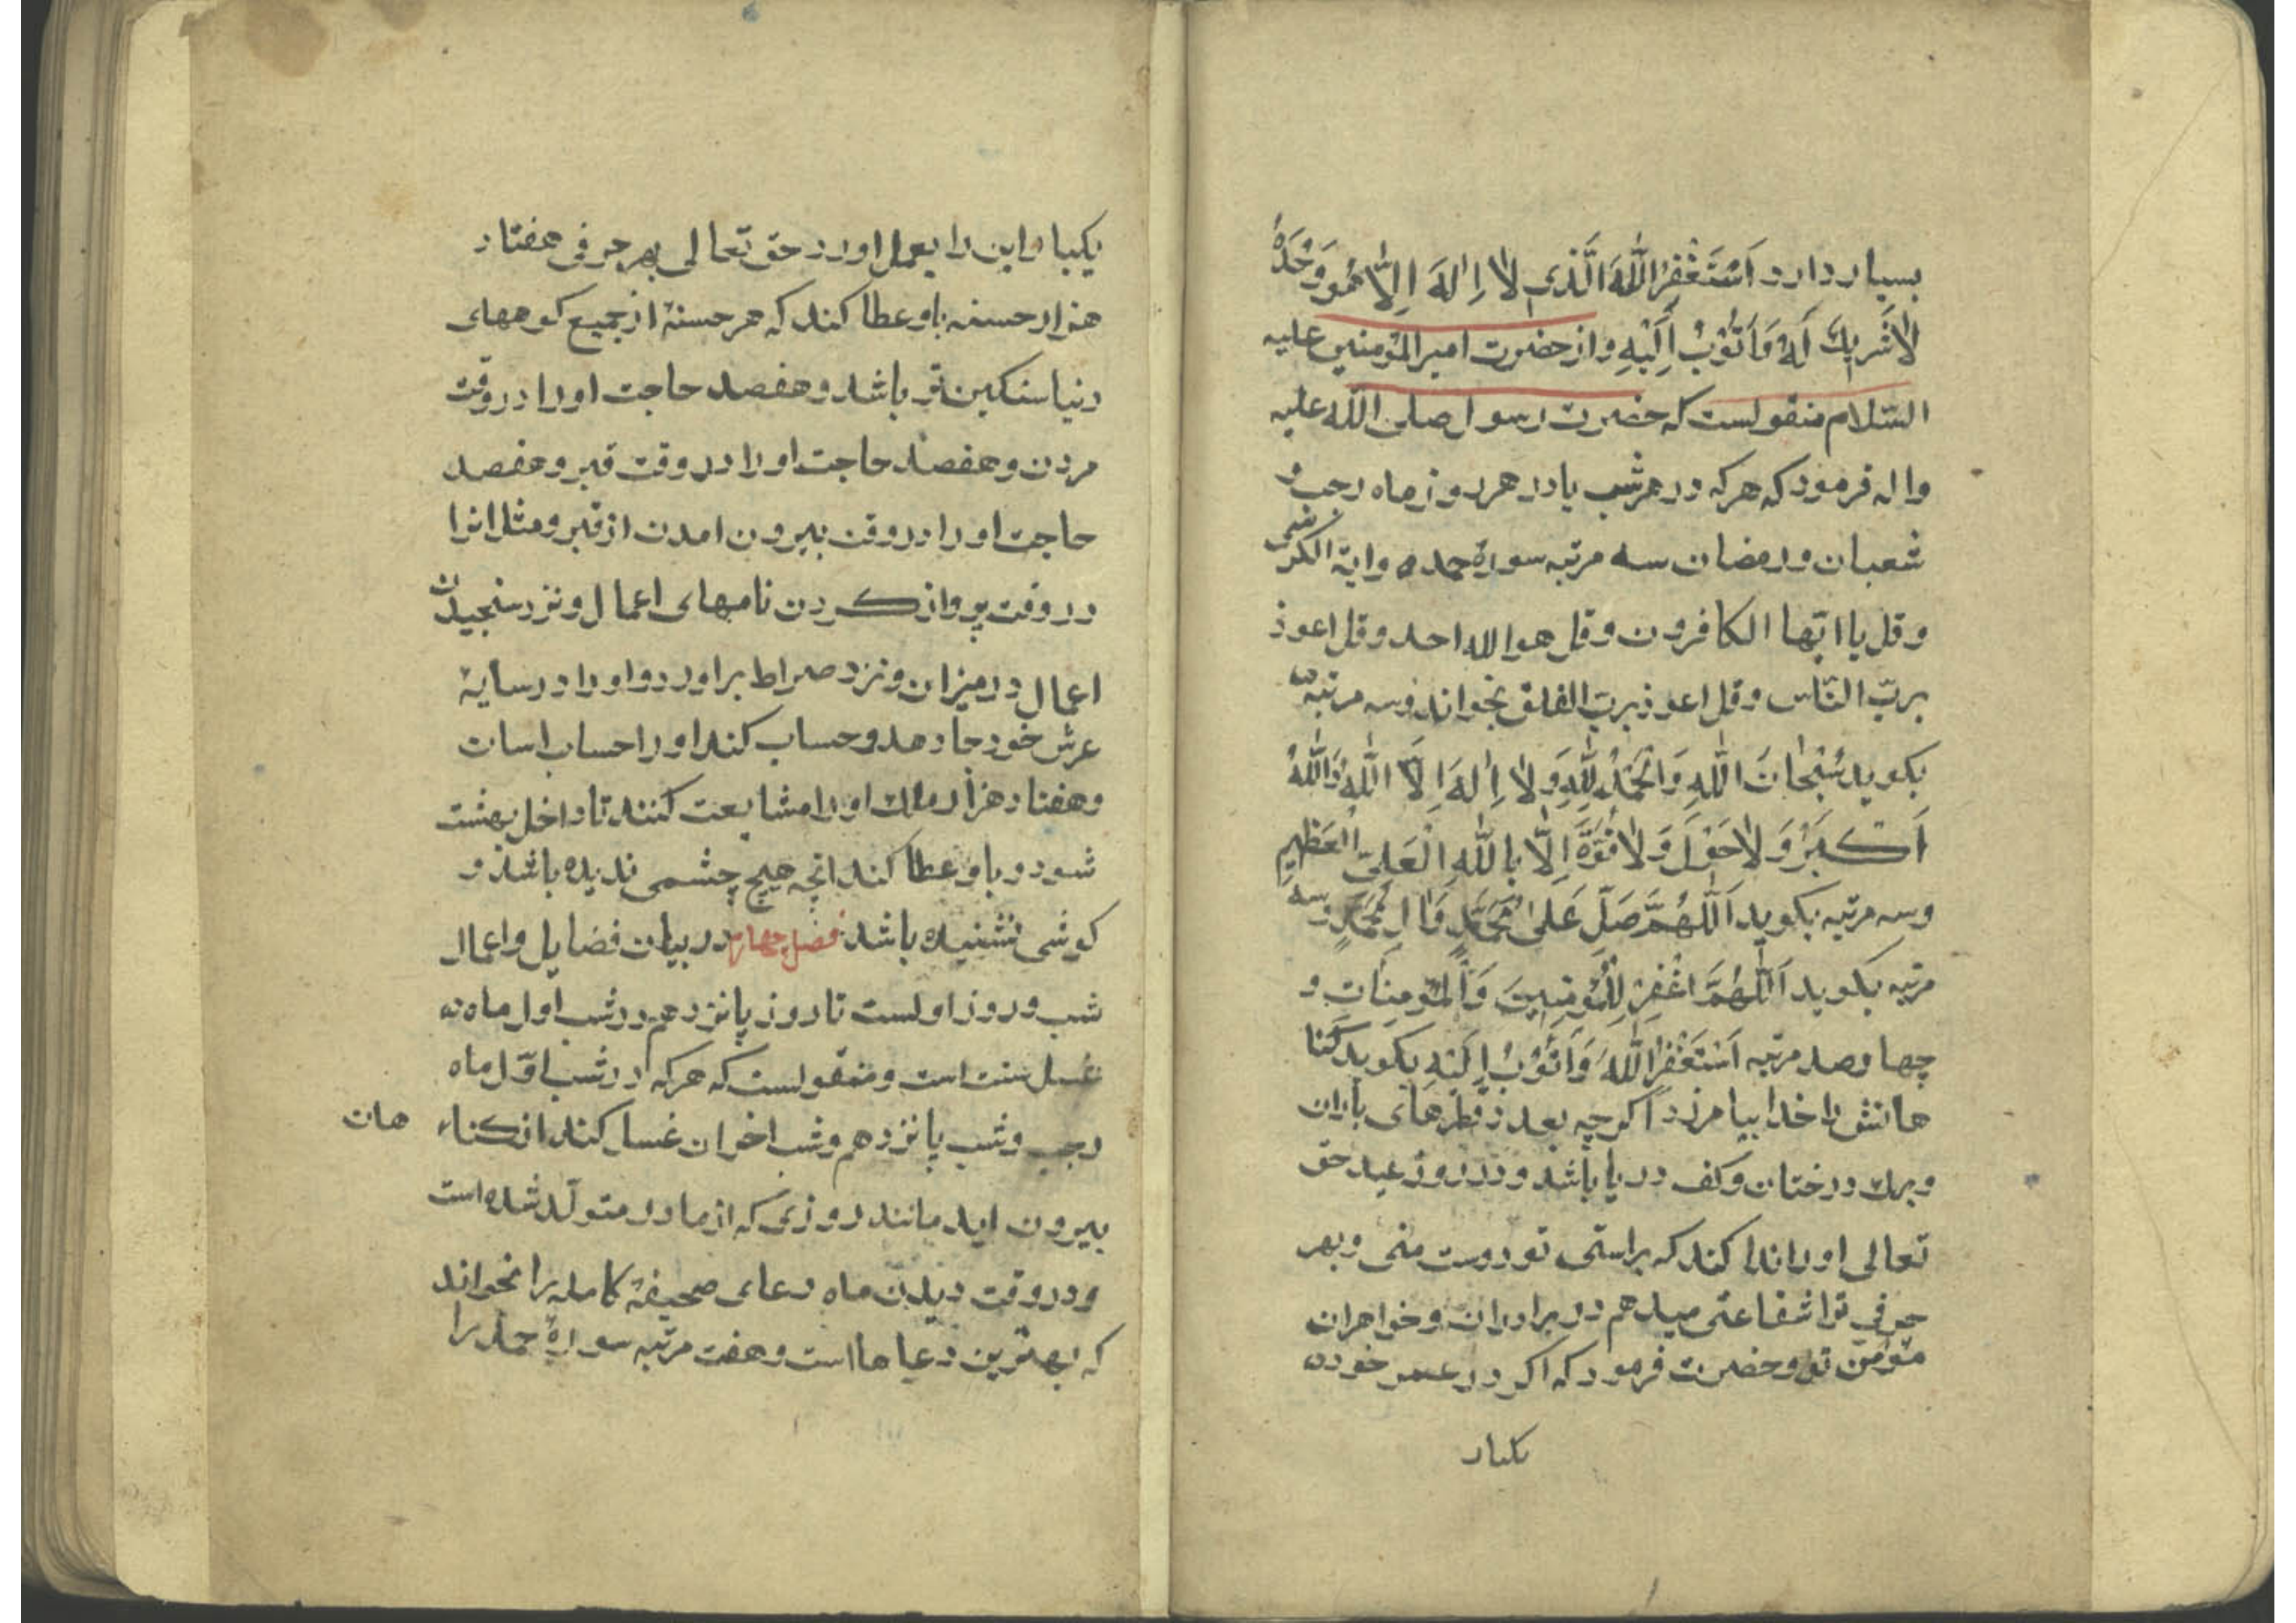 بسیار دارد اَسْتَغْفِرُ اللّٰهَ الَّذی لاٰ اِلٰهَ اِلّاٰ هُوَ وَحْدَهُ
لاٰ شَریكَ لَهُ وَ اَتُوْبُ اِلَیْهِ و از حضرت امیر المؤمنین علیه
السّلام منقولست که حضرت رسول صلی اللّه علیه
و اله فرمود که هر که در هر شب یا در هر روز ماه رجب و
شعبان و رمضان سه مرتبه سورهٔ حمد و ایة الکرسی
و قل یا ایّها الکافرون و قل هو الله احد و قل اعوذ
بربّ النّاس و قل اعوذ بربّ الفلق بخواند و سه مرتبه
بکوید سُبْحٰانَ اللّٰهِ وَ الْحَمْدُ لِلّٰهِ وَ لاٰ اِلٰهَ اِلاَّ اللّٰهُ وَ اللّٰهُ
اَکْبَرُ وَ لاٰ حَوْلَ وَ لاٰ قُوَّةَ اِلّاٰ بِاللّٰهِ الْعَلِیِّ الْعَظیمِ
و سه مرتبه بکوید اَللّٰهُمَّ صَلِّ عَلیٰ مُحَمَّدٍ وَ اٰلِ مُحَمَّدٍ و سه
مرتبه بکوید اَللّٰهُمَّ اغْفِرْ لِلْمُؤْمِنینَ وَ الْمُؤْمِنٰاتِ و
چهار صد مرتبه اَسْتَغْفِرُ اللّٰهَ وَ اَتُوْبُ اِلَیْهِ بکوید کنا
هانش را خدا بیامرزد اکرچه بعدد قطرهای باران
و برك درختان و کف دریا باشد و در روز عید حق
تعالی او را ندا کند که براستی تو دوست منی و بهر
حرفی ترا شفاعتی میدهم در برادران و خواهران
مؤمن تو و حضرت فرمود که اکر در عمر خود
یکبار
یکبار این را بعمل اورد حق تعالی بهر حرفی هفتاد
هزار حسنه باو عطا کند که هر حسنهٔ از جمیع کوههای
دنیا سنکین تر باشد و هفصد حاجت او را در وقت
مردن و هفصد حاجت او را در وقت قبر و هفصد
حاجت او را در وقت بیرون امدن از قبر و مثل انرا
در وقت پرواز کردن نامهای اعمال و نزد سنجیدن
اعمال در میزان و نزد صراط براورد و او را در سایهٔ
عرش خود جا دهد و حساب کند او را حساب اسان
و هفتاد هزار ملك او را مشایعت کنند تا داخل بهشت
شود و باو عطا کند انچه هیچ چشمی ندیده باشد و
کوشی نشنیده باشد فصل چهارم در بیان فضایل و اعمال
شب و روز اولست تا روز پانزدهم در شب اول ماه
غسل سنت است و منقولست که هر که در شب اوّل ماه
رجب و شب پانزدهم و شب اخر ان غسل کند از کناه هان
بیرون اید مانند روزی که از مادر متولّد شده است
و در وقت دیدن ماه دعای صحیفهٔ کامله را بخواند
که بهترین دعاها است و هفت مرتبه سورهٔ حمد را